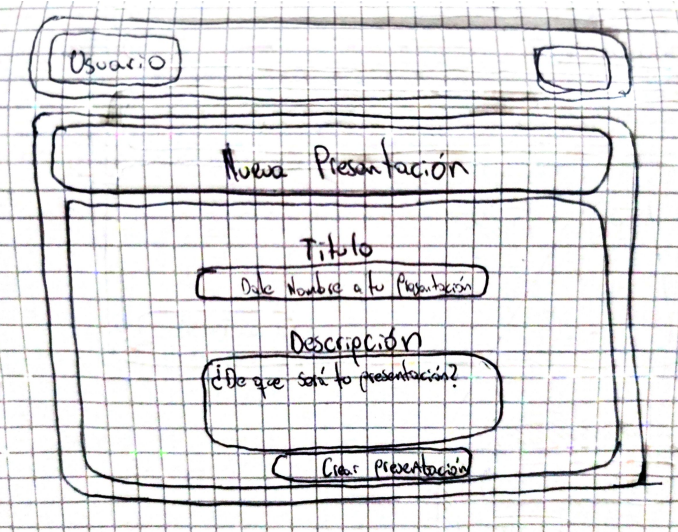 Usuario
Nueva Presentación
Titulo
Dale Nombre a tu Presentación
Descripción
¿De que será tu presentación?
Crear presentación